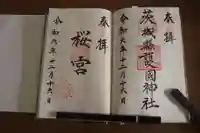 奉拝
茨城縣護國神社
令和六年十二月十六日
奉拝
桜宮
令和六年十二月十六日